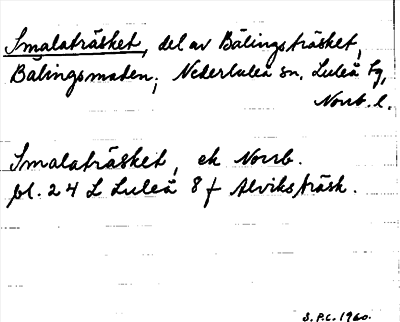 Smalaträsket, del av Bälingsträsket,
Bälingsmaden; Nederluleå sn, Luleå tg,
Norrb. l.
Smalaträsket, ek Norrb.
bl. 24 L Luleå 8 f Alviksträsk.
S.P.C. 1960.